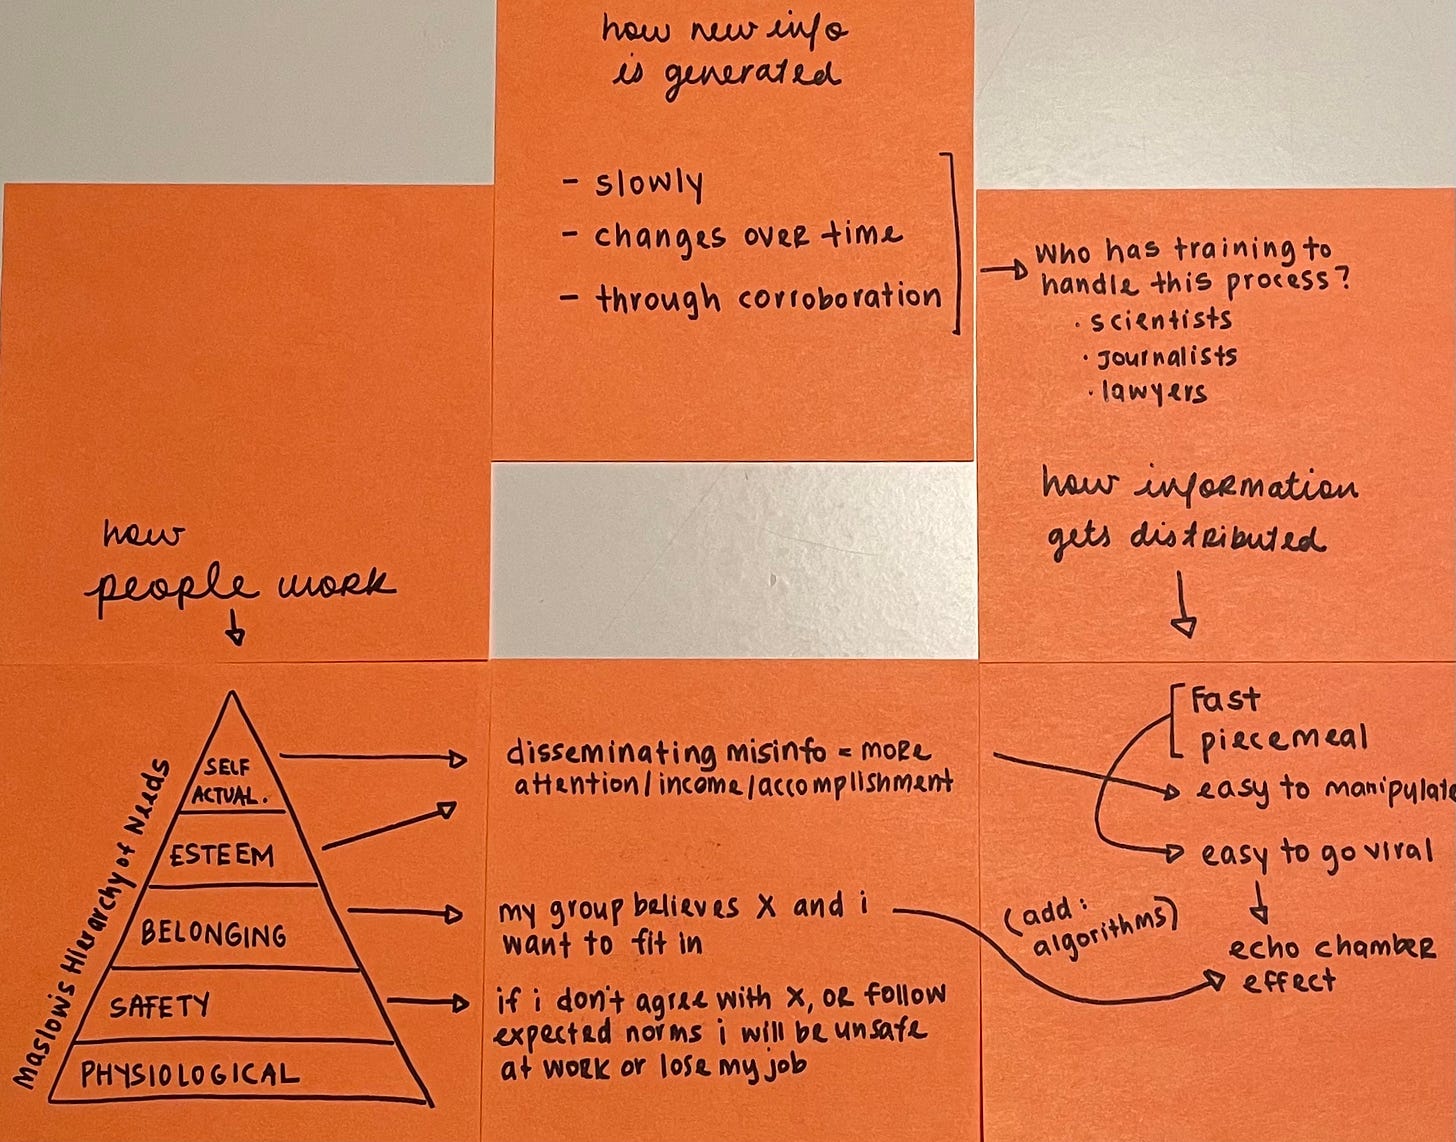 how new info
is generated
- slowly
- changes over time
- through corroboration
Who has training to
handle this process?
· scientists
· journalists
· lawyers
how information
gets distributed
how
people work
Maslow's Hierarchy of Needs
SELF
ACTUAL.
ESTEEM
BELONGING
SAFETY
PHYSIOLOGICAL
disseminating misinfo = more
attention/income/accomplishment
my group believes X and i
want to fit in
if i don't agree with X, or follow
expected norms i will be unsafe
at work or lose my job
Fast
piecemeal
easy to manipulate
easy to go viral
(add:
algorithms)
echo chamber
effect